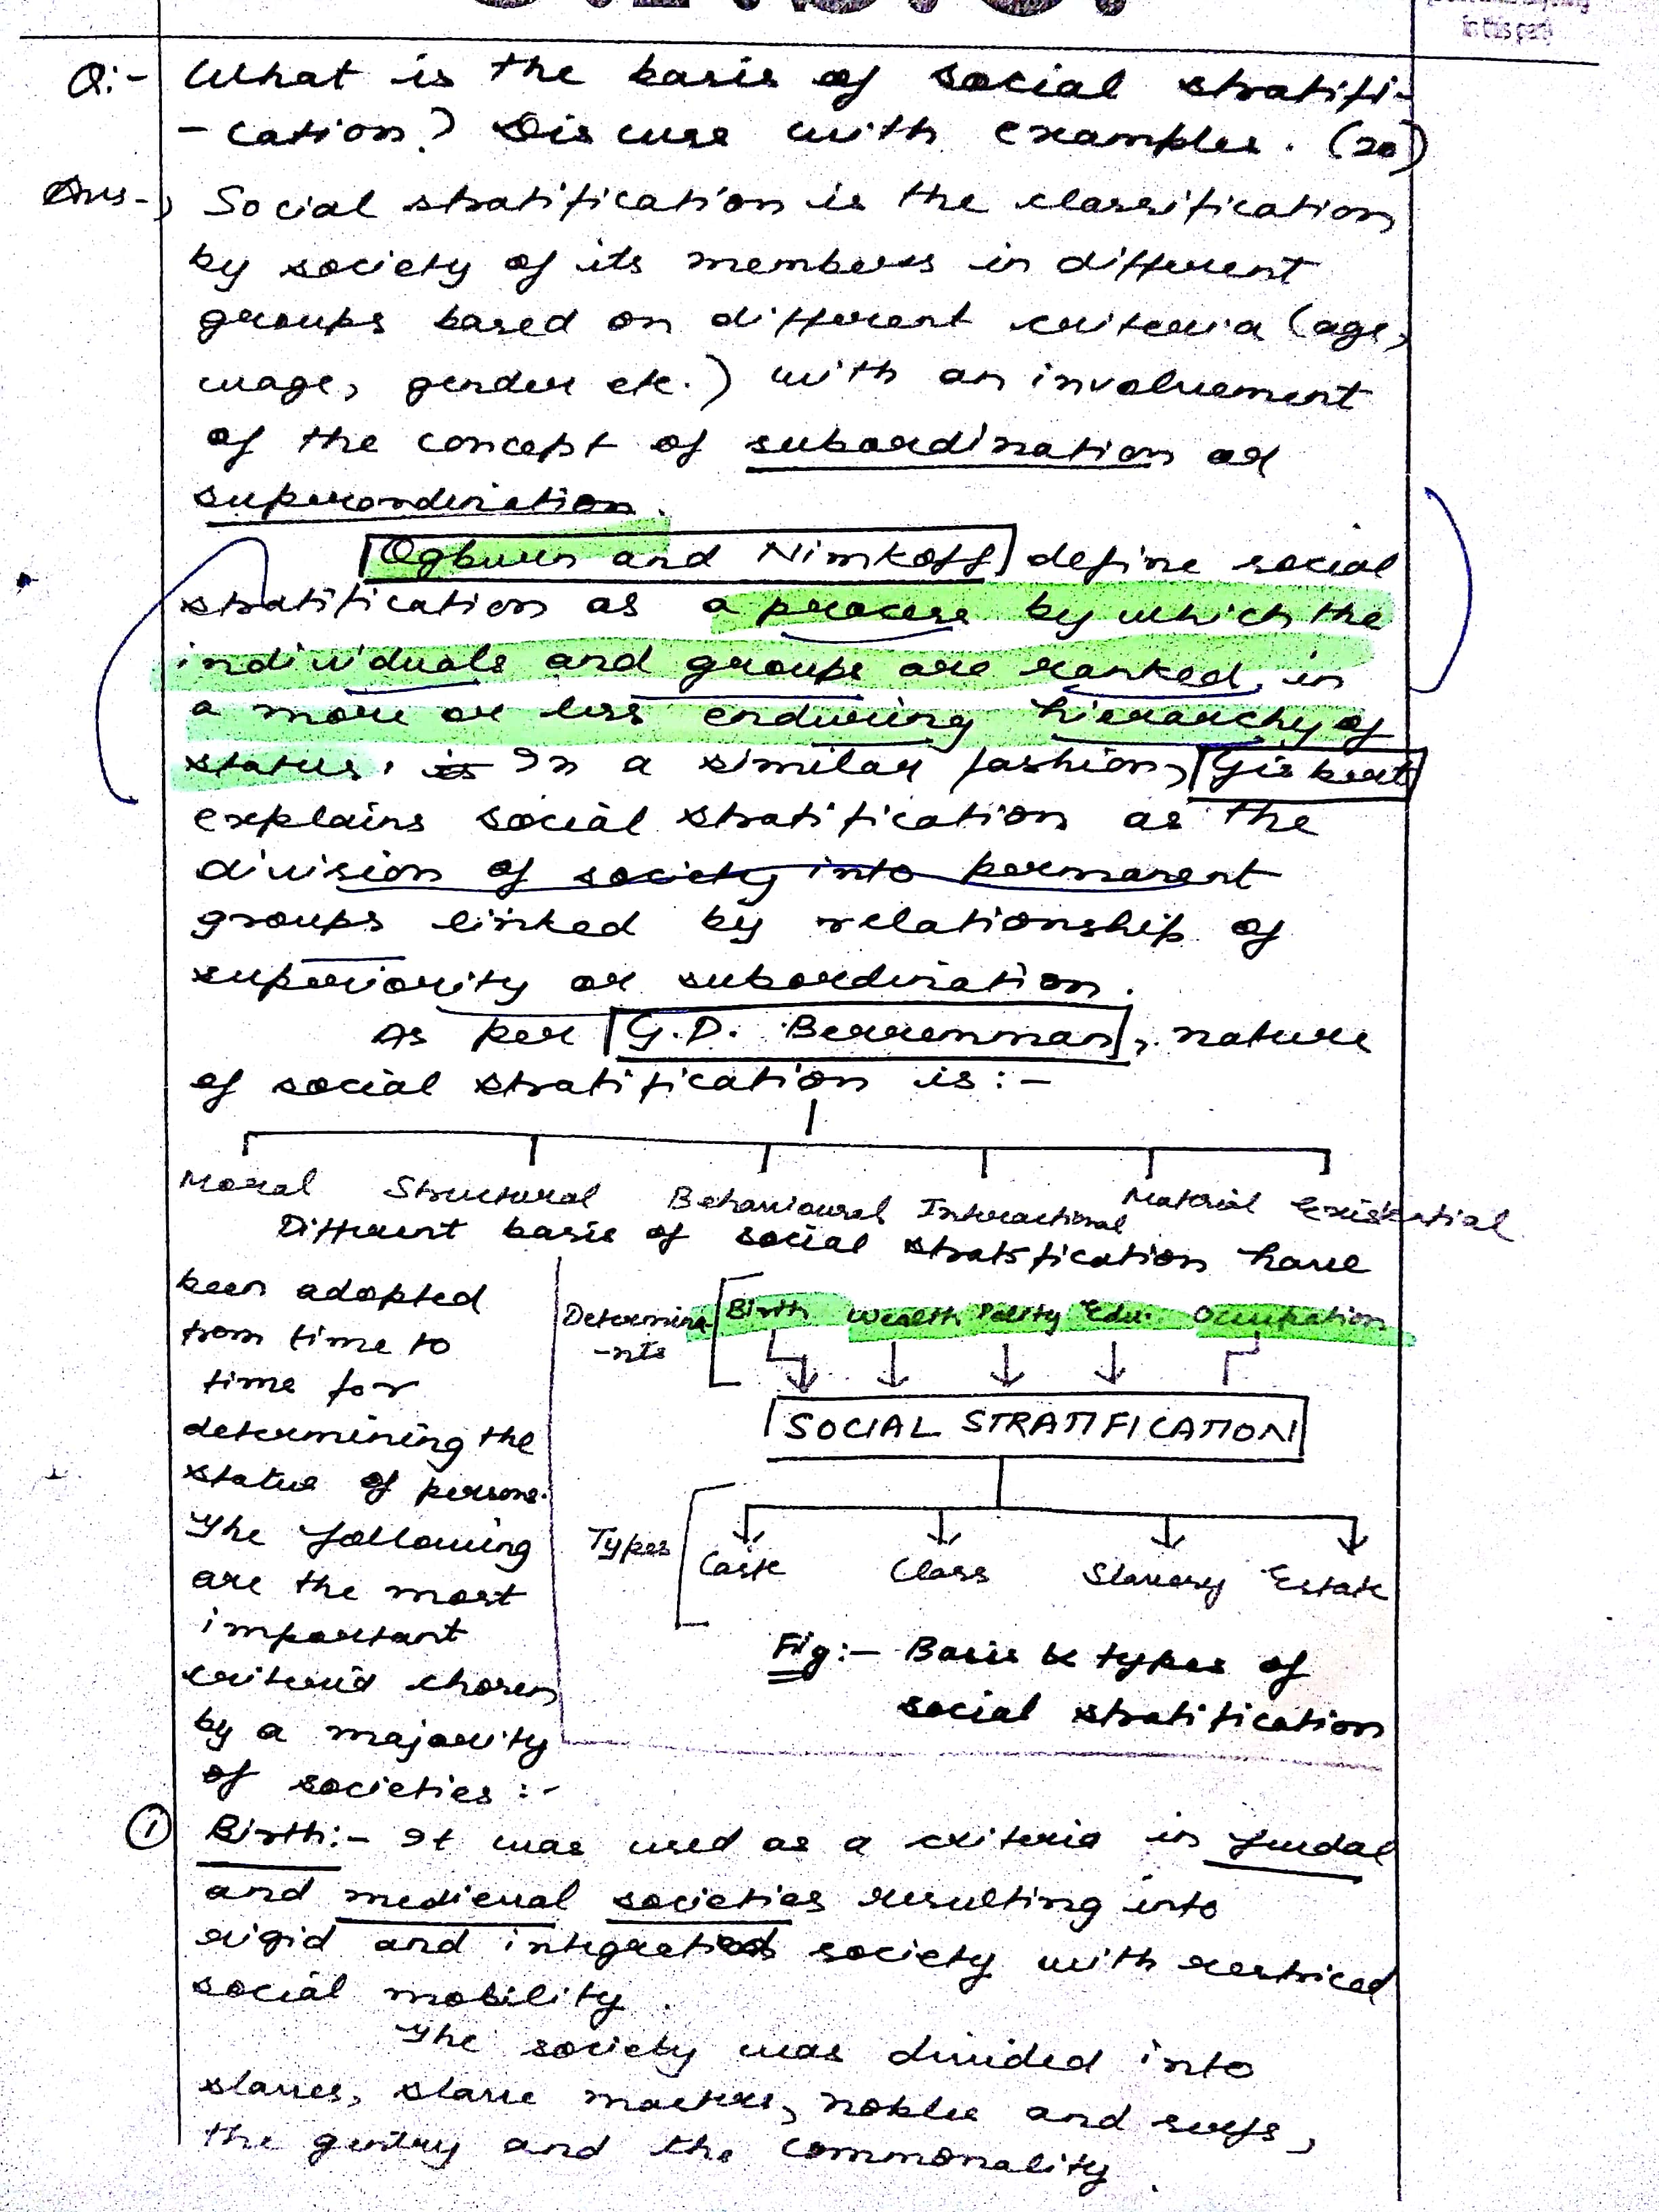 in this part)
Q:- What is the basis of social stratifi-
-cation? Discuss with examples. (20)
Ans-) Social stratification is the classification
by society of its members in different
groups based on different criteria (age,
wage, gender etc.) with an involvement
of the concept of subordination or
superordination.
Ogburn and Nimkoff define social
stratification as a process by which the
individuals and groups are ranked, in
a more or less enduring hierarchy of
status. In a similar fashion, Gisbert
explains social stratification as the
division of society into permanent
groups linked by relationship of
superiority or subordination.
As per G.D. Berremman, nature
of social stratification is:-
Moral Structural Behavioural Interactional Material Existential
Different basis of social stratification have
been adopted
from time to
time for
determining the
status of persons.
The following
are the most
important
criteria chosen
by a majority
of societies:-
Determina-
-nts
Birth Wealth Polity Edu. Occupation
SOCIAL STRATIFICATION
Types
Caste Class Slavery Estate
Fig:- Basis & types of
social stratification
① Birth:- It was used as a criteria in feudal
and medieval societies resulting into
rigid and society with restriced
social mobility.
The society was divided into
slaves, slave masters, nobles and serfs,
the gentry and the commonality.